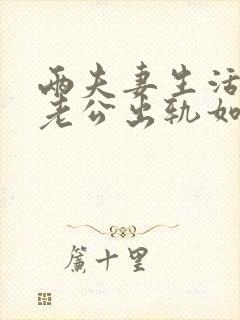 两夫妻生活
老公出轨如
帘十里